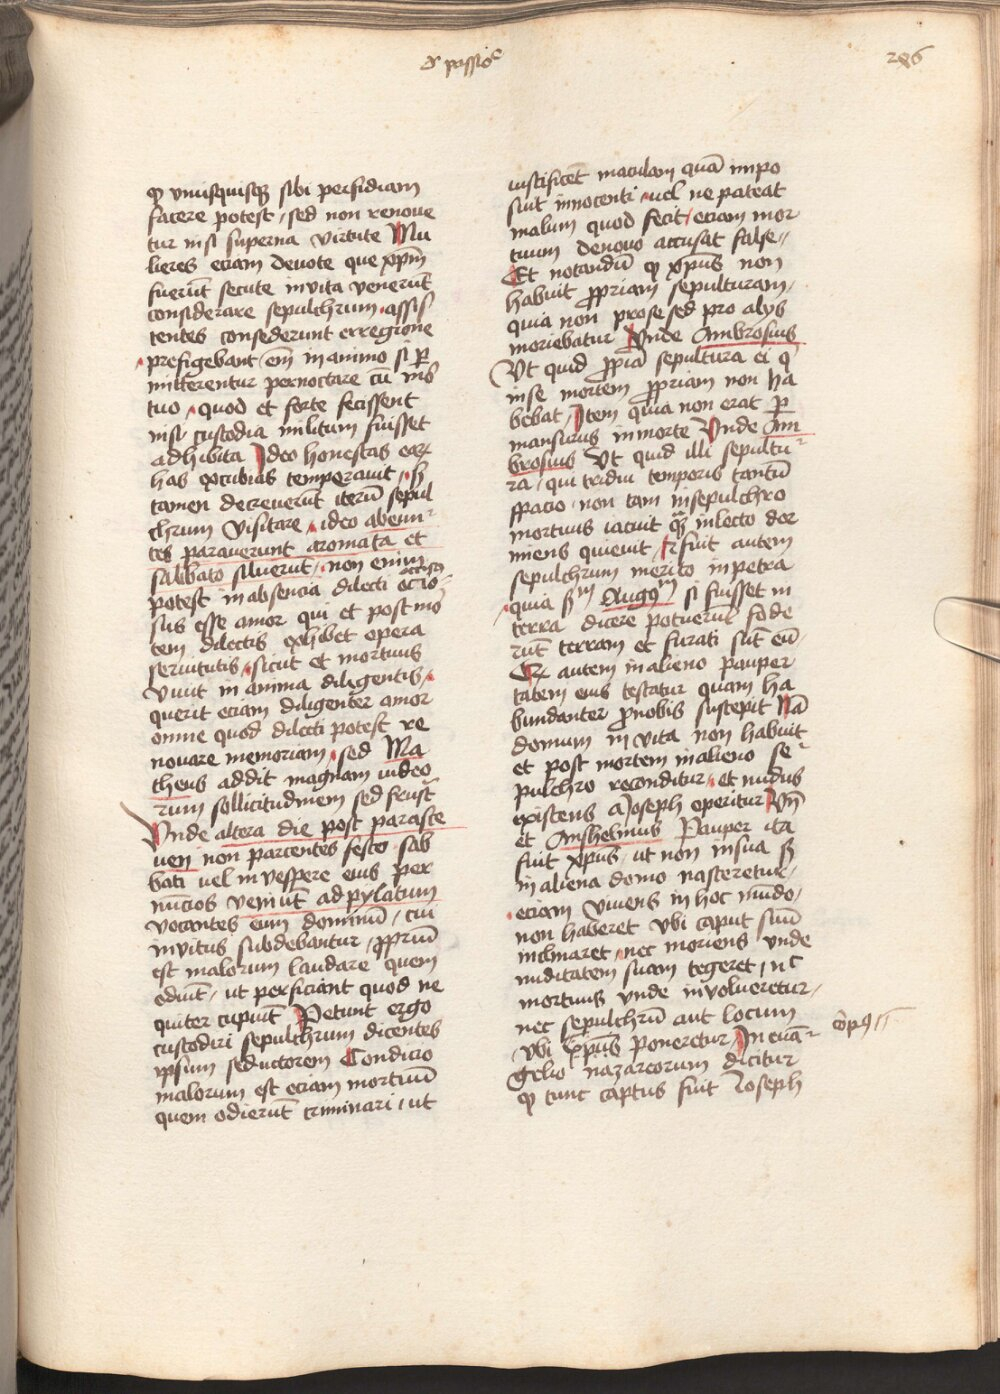 De passiōe
286
ꝙ vnusquisqꝫ sibi perfidiam
facere potest / sed non renoue
tur nisi superna virtute Mu
lieres eciam deuote que xp̄m
fuerūt secute in vita venerūt
considerare sepulchrum · assis
tentes consederunt e regione
prefigebant em̄ in animo si ꝑ
mitterentur pernoctare cū mor
tuo · quod et forte fecissent
nisi custodia militum fuisset
adhibita Ideo honestas eaꝝ
has excubias temperauit · sꝫ
tamen decreuerūt iterū sepul
chrum visitare · ideo abeun
tes parauerunt aromata et
sabbato siluerūt · non enim
potest in absencia dilecti ocio
sus esse amor qui et post mor
tem dilectis exhibet opera
seruitutis · sicut et mortuus
viuit in anima diligentis ·
querit eciam diligenter amor
omne quod dilecti potest re
nouare memoriam · sed Ma
theus addit magnam iudeo
rum sollicitudinem sed frustra
Vnde altera die post parasce
uen non parcentes festo sab
bati uel in vespere eius per
nūcios venīut ad pylatum
vocantes eum dominū / cui
inuitus subdebantur / ꝓpriū
est malorum laudare quem
odiūt / ut perficiant quod ne
quiter cupiūt Petunt ergo
custodiri sepulchrum dicentes
ipsum seductorem Condicio
malorum est eciam mortuū
quem odierūt criminari / ut
iustificēt maculam quā impo
suit innocenti · uel ne pateat
malum quod fecit / eciam mor
tuum denouo accusat false //
Et notandū ꝙ xp̄us non
habuit ꝓpriam sepulturam /
quia non pro se sed pro alijs
moriebatur Vnde Ambrosius
Vt quid ꝓpīa sepultura ei qͥ
in se mortem ꝓpriam non ha
bebat Item quia non erat ꝑ
mansurus in morte Vnde Am
brosius Vt quid illi sepultu
ra / qui tridui temporis tantū
spacio · non tam in sepulchro
mortuus iacuit quā in lecto dor
miens quieuit / Fuit autem
sepulchrum merito in petra
quia sm̄ Augum̄ si fuisset in
terra dicere potuerūt fode
rūt terram et furati sūt eū ·
Qꝛ autem in alieno pauper
tatem eius testatur quam ha
bundanter ꝓ nobis suscepit Nā
domum in vita non habuit
et post mortem in alieno se
pulchro reconditur · et nudus
existens a Joseph operitur Vn̄
et Anshelmus Pauper ita
fuit xp̄us · ut non in sua sꝫ
in aliena domo nasceretur /
eciam viuens in hoc mūdo ·
non haberet vbi caput suū
inclinaret · nec moriens vnde
nuditatem suam tegeret / nec
mortuus vnde inuolueretur /
nec sepulchrū aut locum
vbi xp̄us poneretur / In euā
gelio nazareorum dicitur
ꝙ tunc captus fuit Joseph